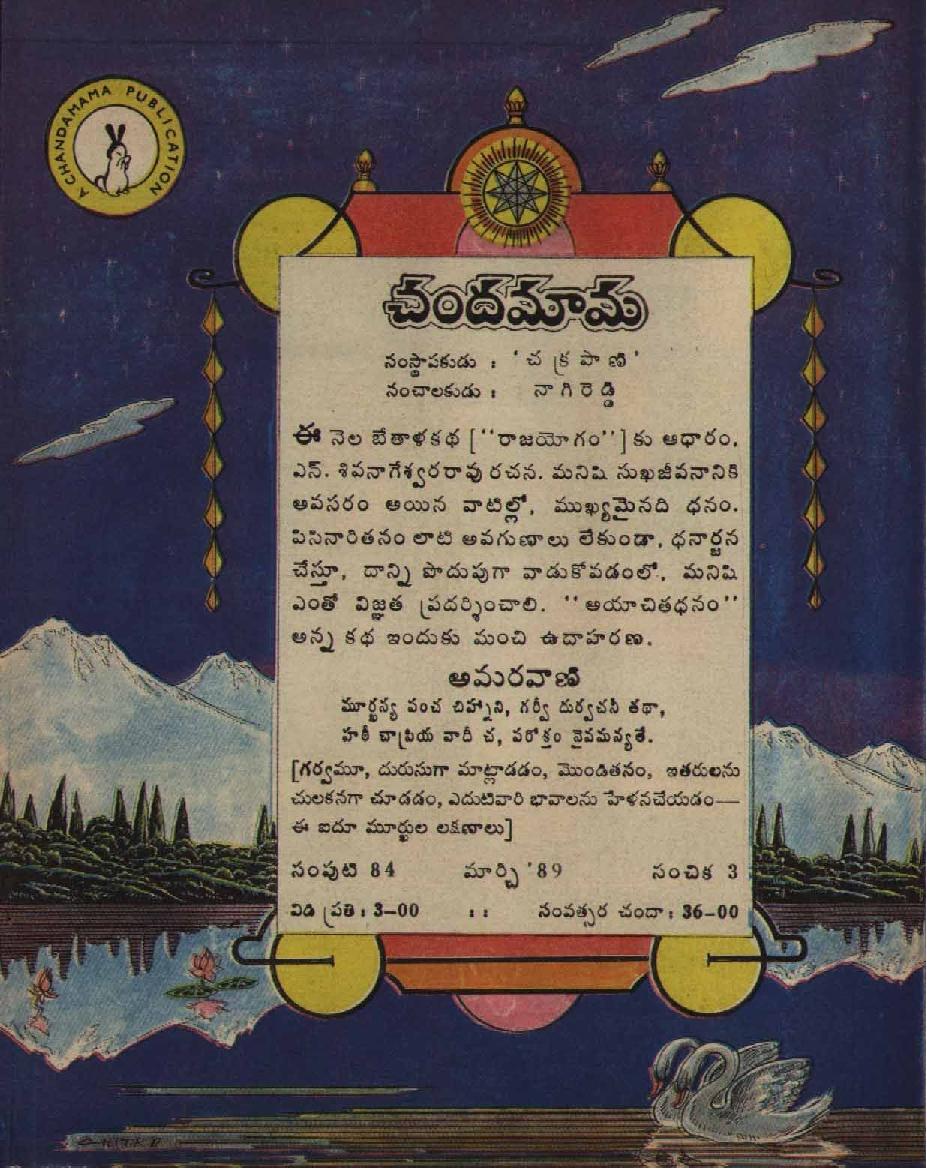 A CHANDAMAMA PUBLICATION
చందమామ
సంస్థాపకుడు : 'చక్రపాణి'
సంచాలకుడు : నాగిరెడ్డి
ఈ నెల బేతాళకథ [''రాజయోగం''] కు ఆధారం,
ఎన్. శివనాగేశ్వరరావు రచన. మనిషి సుఖజీవనానికి
అవసరం అయిన వాటిల్లో, ముఖ్యమైనది ధనం.
పిసినారితనం లాటి అవగుణాలు లేకుండా, ధనార్జన
చేస్తూ, దాన్ని పొదుపుగా వాడుకోవడంలో, మనిషి
ఎంతో విజ్ఞత ప్రదర్శించాలి. ''అయాచితధనం''
అన్న కథ ఇందుకు మంచి ఉదాహరణ.
అమరవాణి
మూర్ఖస్య పంచ చిహ్నాని, గర్వీ దుర్వచనీ తథా,
హఠీ చాప్రియ వాదీ చ, పరోక్తం నైవమన్యతే.
[గర్వమూ, దురుసుగా మాట్లాడడం, మొండితనం, ఇతరులను
చులకనగా చూడడం, ఎదుటివారి భావాలను హేళనచేయడం—
ఈ ఐదూ మూర్ఖుల లక్షణాలు]
సంపుటి 84 మార్చి '89 సంచిక 3
విడి ప్రతి : 3-00 : : సంవత్సర చందా : 36-00